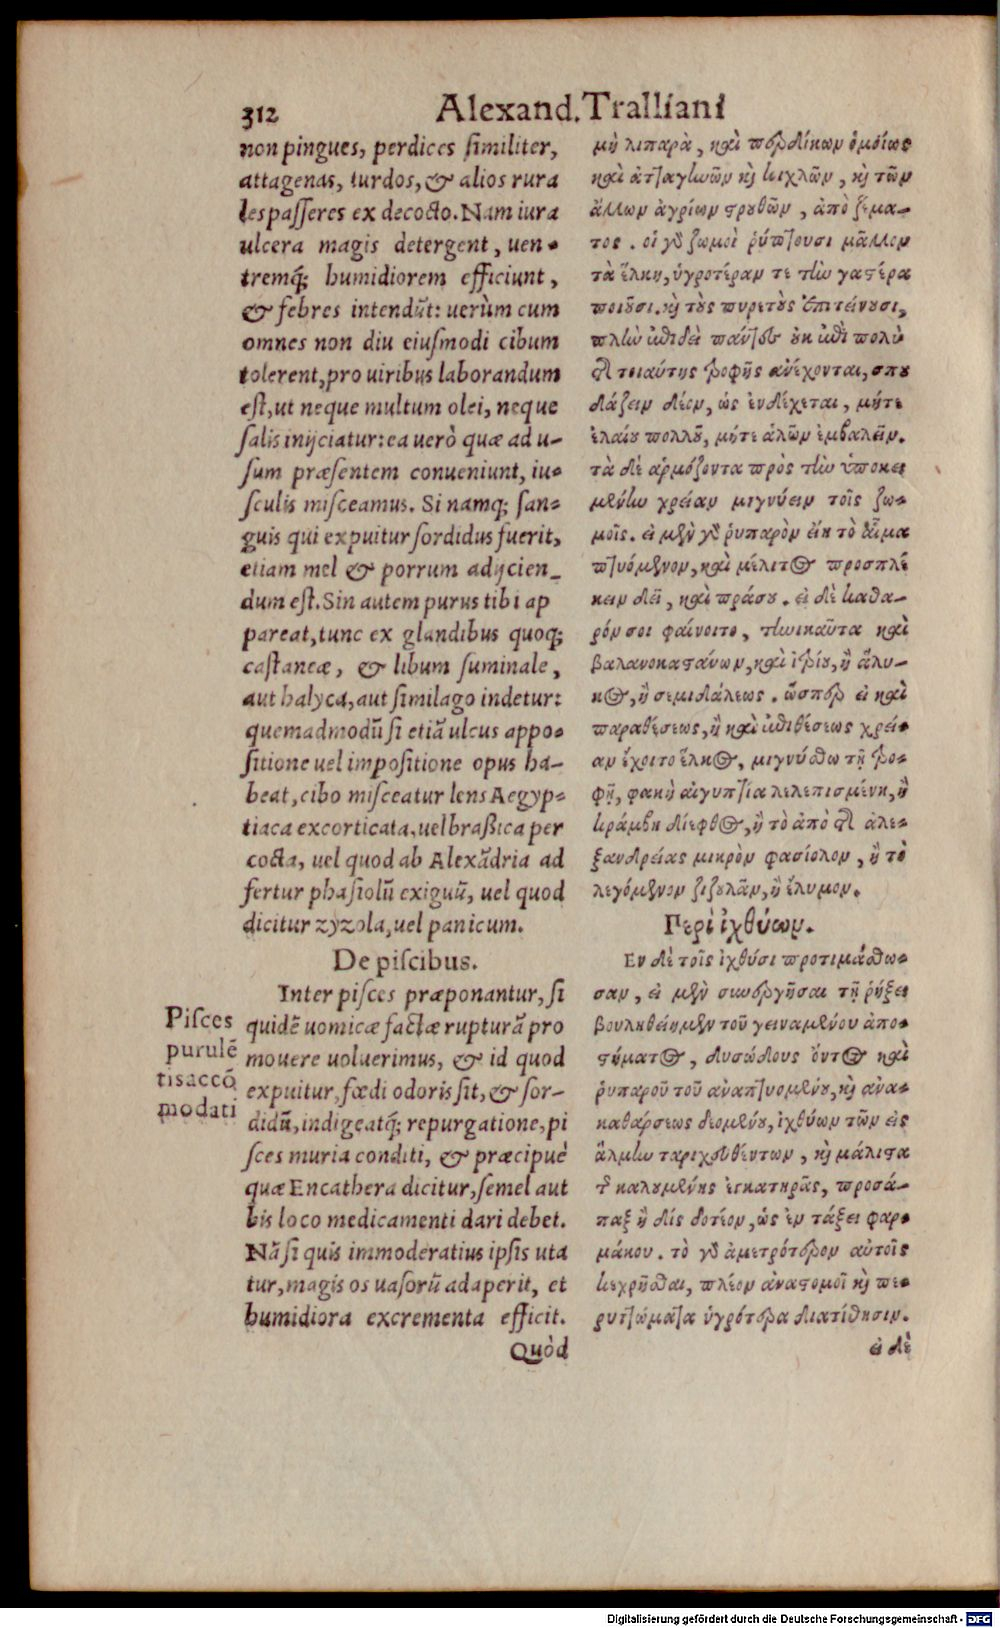 312 Alexand. Tralliani
non pingues, perdices similiter,
attagenas, turdos, & alios rura
les passeres ex decocto. Nam iura
ulcera magis detergent, uen-
tremq́; humidiorem efficiunt,
& febres intendũt: uerùm cum
omnes non diu eiusmodi cibum
tolerent, pro uiribus laborandum
est, ut neque multum olei, neque
salis inijciatur: ea uerò quæ ad u-
sum præsentem conueniunt, iu-
sculis misceamus. Si namq; san-
guis qui expuitur sordidus fuerit,
etiam mel & porrum adijcien_
dum est. Sin autem purus tibi ap
pareat, tunc ex glandibus quoq;
castaneæ, & libum suminale,
aut halyca, aut similago indetur:
quemadmodũ si etiã ulcus appo-
sitione uel impositione opus ha-
beat, cibo misceatur lens Aegyp-
tiaca excorticata, uel brassica per
cocta, uel quod ab Alexãdria ad
fertur phasiolũ exiguũ, uel quod
dicitur zyzola, uel panicum.
De piscibus.
Inter pisces præponantur, si
quidẽ uomicæ factæ rupturã pro
mouere uoluerimus, & id quod
expuitur, fœdi odoris sit, & sor-
didũ, indigeatq́; repurgatione, pi
sces muria conditi, & præcipuè
quæ Encathera dicitur, semel aut
bis loco medicamenti dari debet.
Nã si quis immoderatius ipsis uta
tur, magis os uasorũ adaperit, et
humidiora excrementa efficit.
Quòd
Pisces
purulẽ
tis accõ
modati
μὴ λιπαρὰ, καὶ περδίκων ὁμοίως
καὶ ἀτταγηνῶν κὶ κιχλῶν, κὶ τῶν
ἄλλων ἀγρίων στρουθῶν, ἀπὸ ζέμα-
τος. οἱ γὰρ ζωμοὶ ῥύπτουσι μᾶλλον
τὰ ἕλκη, ὑγροτέραν τε τὴν γαστέρα
ποιοῦσι. κὶ τοὺς πυρετοὺς ἐπιτείνουσι,
πλὴν ἐπειδὲ πάντες οὐκ ἐπὶ πολὺ
τῆς τοιαύτης τροφῆς ἀνέχονται, σπου
δάζειν δέον, ὡς ἐνδέχεται, μήτε
ἐλαίου πολλοῦ, μήτε ἁλῶν ἐμβαλεῖν.
τὰ δὲ ἁρμόζοντα πρὸς τὴν ὑποκει
μένην χρείαν μιγνύειν τοῖς ζω-
μοῖς. εἰ μὲν γὰρ ῥυπαρὸν εἴη τὸ αἷμα
πτυόμενον, καὶ μέλιτος προσπλέ
κειν δεῖ, καὶ πράσου. εἰ δὲ καθα-
ρόν σοι φαίνοιτο, τηνικαῦτα καὶ
βαλανοκαστάνων, καὶ ἰτρίου, ἢ ἄλυ-
κος, ἢ σεμιδάλεως. ὥσπερ εἰ καὶ
παραθέσεως, ἢ καὶ ἐπιθέσεως χρεί-
αν ἔχοιτο ἕλκος, μιγνύσθω τῇ τρο-
φῇ, φακῆ αἰγυπτία λελεπισμένη, ἢ
κράμβη δίεφθος, ἢ τὸ ἀπὸ τῆς ἀλε-
ξανδρείας μικρὸν φασίολον, ἢ τὸ
λεγόμενον ζιζουλᾶν, ἢ ἔλυμον.
Περὶ ἰχθύων.
Εν δὲ τοῖς ἰχθύσι προτιμάσθω-
σαν, εἰ μὲν συνεργῆσαι τῇ ῥήξει
βουληθείημεν τοῦ γειναμένου ἀπο-
στήματος, δυσώδους ὄντος καὶ
ῥυπαροῦ τοῦ ἀναπτυομένου, κὶ ἀνα-
καθάρσεως δεομένου, ἰχθύων τῶν εἰς
ἅλμην ταριχευθέντων, κὶ μάλιστα
τῆς καλουμένης ἐγκατηρᾶς, προσά-
παξ ἢ δίς δοτέον, ὡς ἐν τάξει φαρ-
μάκου. τὸ γὰρ ἀμετρότερον αὐτοῖς
κεχρῆσθαι, πλέον ἀναστομοῖ κὶ πε-
ριττώματα ὑγρότερα διατίθησιν.
εἰ δὲ
Digitalisierung gefördert durch die Deutsche Forschungsgemeinschaft - DFG